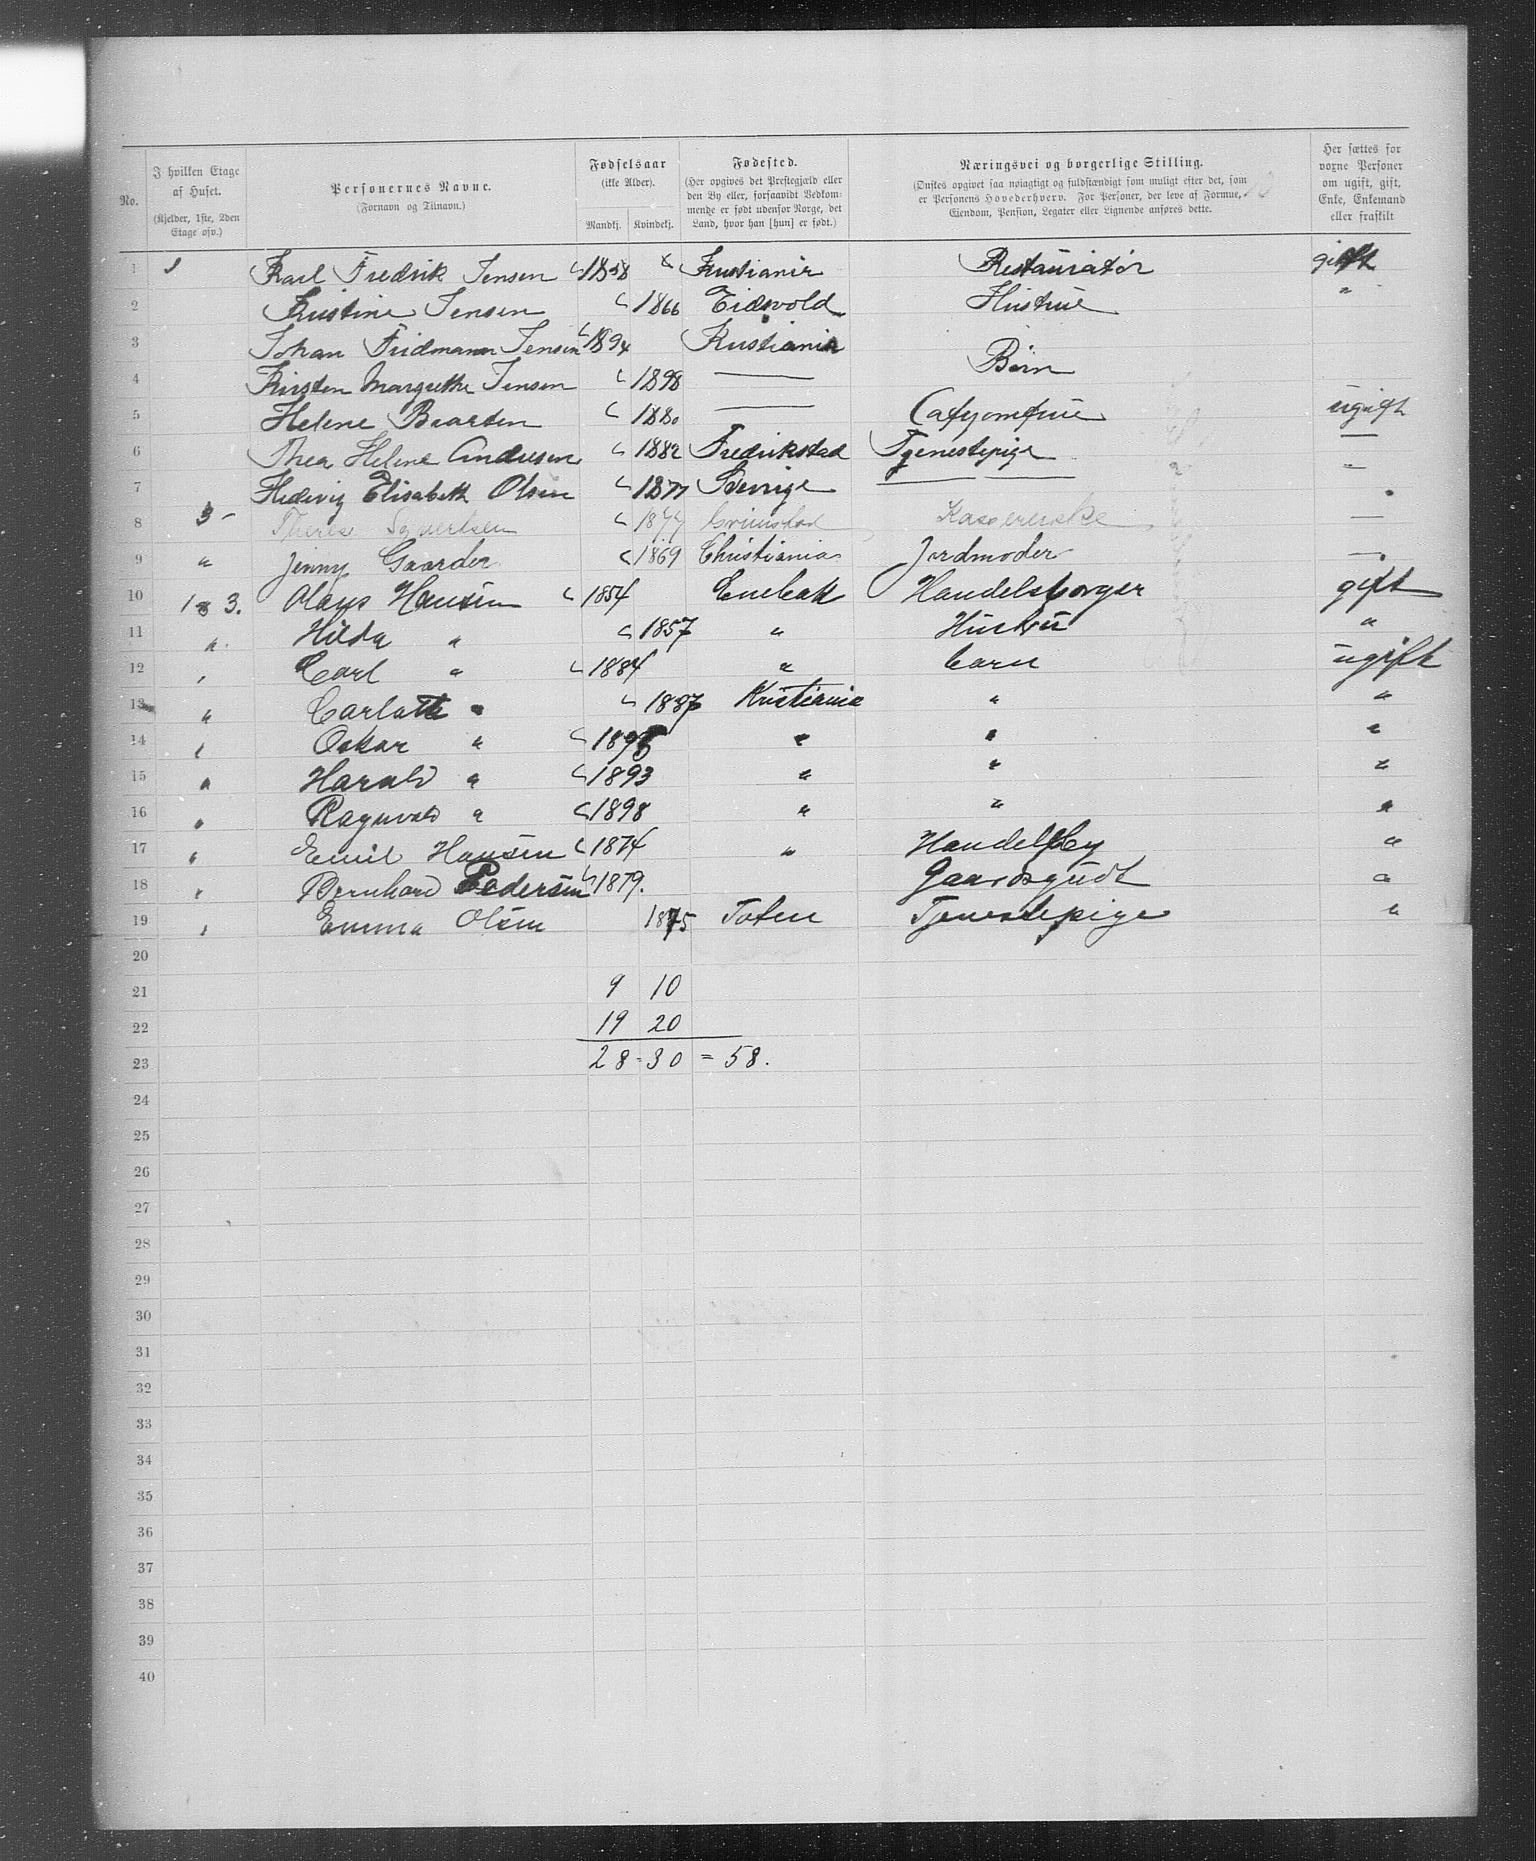 No.
I hvilken Etage af Huset. (Kjelder, 1ste, 2den Etage osv.)
Personernes Navne. (Fornavn og Tilnavn.)
Fødselsaar (ikke Alder). Mandkj. Kvindekj.
Fødested. (Her opgives det Prestegjæld eller den By eller, forsaavidt Vedkommende er født udenfor Norge, det Land, hvor han [hun] er født.)
Næringsvei og borgerlige Stilling. (Ønskes opgivet saa nøiagtigt og fuldstændigt som muligt efter det, som er Personens Hovederhverv. For Personer, der leve af Formue, Eiendom, Pension, Legater eller Lignende anføres dette.
Her sættes for vorne Personer om ugift, gift, Enke, Enkemand eller fraskilt
1 1 Karl Fredrik Jensen 1858 Kristiania Restauratør gift
2 Kristine Jensen 1866 Eidsvold Hustrue "
3 Johan Fridmann Jensen 1894 Kristiania
4 Kirsten Margrethe Jensen 1898 — Børn
5 Helene Braaten 1880 — Cafejomfrue ugift
6 Thea Helene Andresen 1882 Fredrikstad Tjenestepige —
7 Hedevig Elisabeth Olsen 1877 Sverige — — "
8 3 - Syvertsen 1877 Grimstad Kassererske —
9 " Jenny Gaarder 1869 Christiania Jordmoder —
10 3. Olaus Hansen 1854 Enebak Handelsborger gift
11 " Hilda " 1857 " Hustru "
12 " Carl " 1884 " barn ugift
13 " Carlotta " 1887 Kristiania " "
14 " Oskar " " " "
15 " Harald " 1893 " " "
16 " Ragnvald " 1898 " " "
17 " Emil Hansen 1874 " Handelsby "
18 " Bernhard Pedersen 1879. Gaardsgudt "
19 " Emma Olsen 1875 Toten Tjenestepige "
20
21 9 10
22 19 20
23 28 - 30 = 58.
24
25
26
27
28
29
30
31
32
33
34
35
36
37
38
39
40